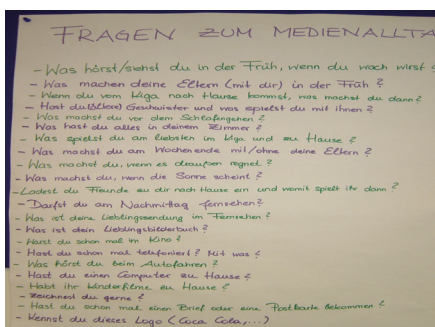 FRAGEN ZUM MEDIENALLTA
- Was hörst/siehst du in der Früh, wenn du wach wirst
- Was machen deine Eltern (mit dir) in der Früh?
- Wenn du vom Kiga nach Hause kommst, was machst du dann?
- Hast du (ältere) Geschwister und was spielst du mit ihnen?
- Was machst du vor dem Schlafengehen?
- Was hast du alles in deinem Zimmer?
- Was spielst du am liebsten im Kiga und zu Hause?
- Was machst du am Wochenende mit/ohne deine Eltern?
- Was machst du, wenn es draußen regnet?
- Was machst du, wenn die Sonne scheint?
- Ladest du Freunde zu dir nach Hause ein und womit spielt ihr dann?
- Darfst du am Nachmittag fernsehen?
- Was ist deine Lieblingssendung im Fernsehen?
- Was ist dein Lieblingsbilderbuch?
- Warst du schon mal im Kino?
- Hast du schon mal telefoniert? Mit was?
- Was hörst du beim Autofahren?
- Hast du einen Computer zu Hause?
- Habt ihr Kinderfilme zu Hause?
- Zeichnest du gerne?
- Hast du schon mal einen Brief oder eine Postkarte bekommen?
- Kennst du dieses Logo (Coca Cola,...)